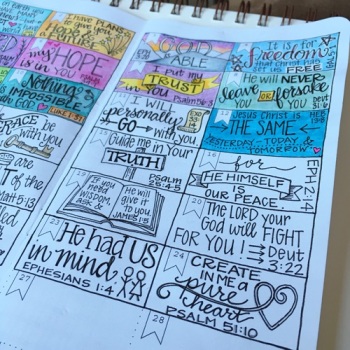 I have PLANS
my HOPE
is in YOU
Nothing
is IMPOSSIBLE
w/ GOD
LUKE 1:37
GRACE be
with you
ARE
of the
Matt 5:13
GOD
ABLE
I put my
TRUST
in YOU Psalm 56:3
I WILL
personally
GO with
YOU
Guide me in Your
TRUTH
Psalm
25:4-5
19
IF you
need
WISDOM,
ask
He will
give it
to you.
JAMES 1:5
23
He had US
in mind
EPHESIANS 1:4
27
28
It is for
Freedom
that Christ has
set us FREE
He will NEVER
leave you OR forsake
you
Deut
Jesus Christ is
THE SAME
YESTERDAY - TODAY &
TOMORROW
16
for
HE HIMSELF
IS
OUR PEACE.
EPH 2:14
20
The LORD your
God will FIGHT
FOR YOU!
Deut
3:22
24
CREATE
IN ME a
pure
heart
PSALM 51:10